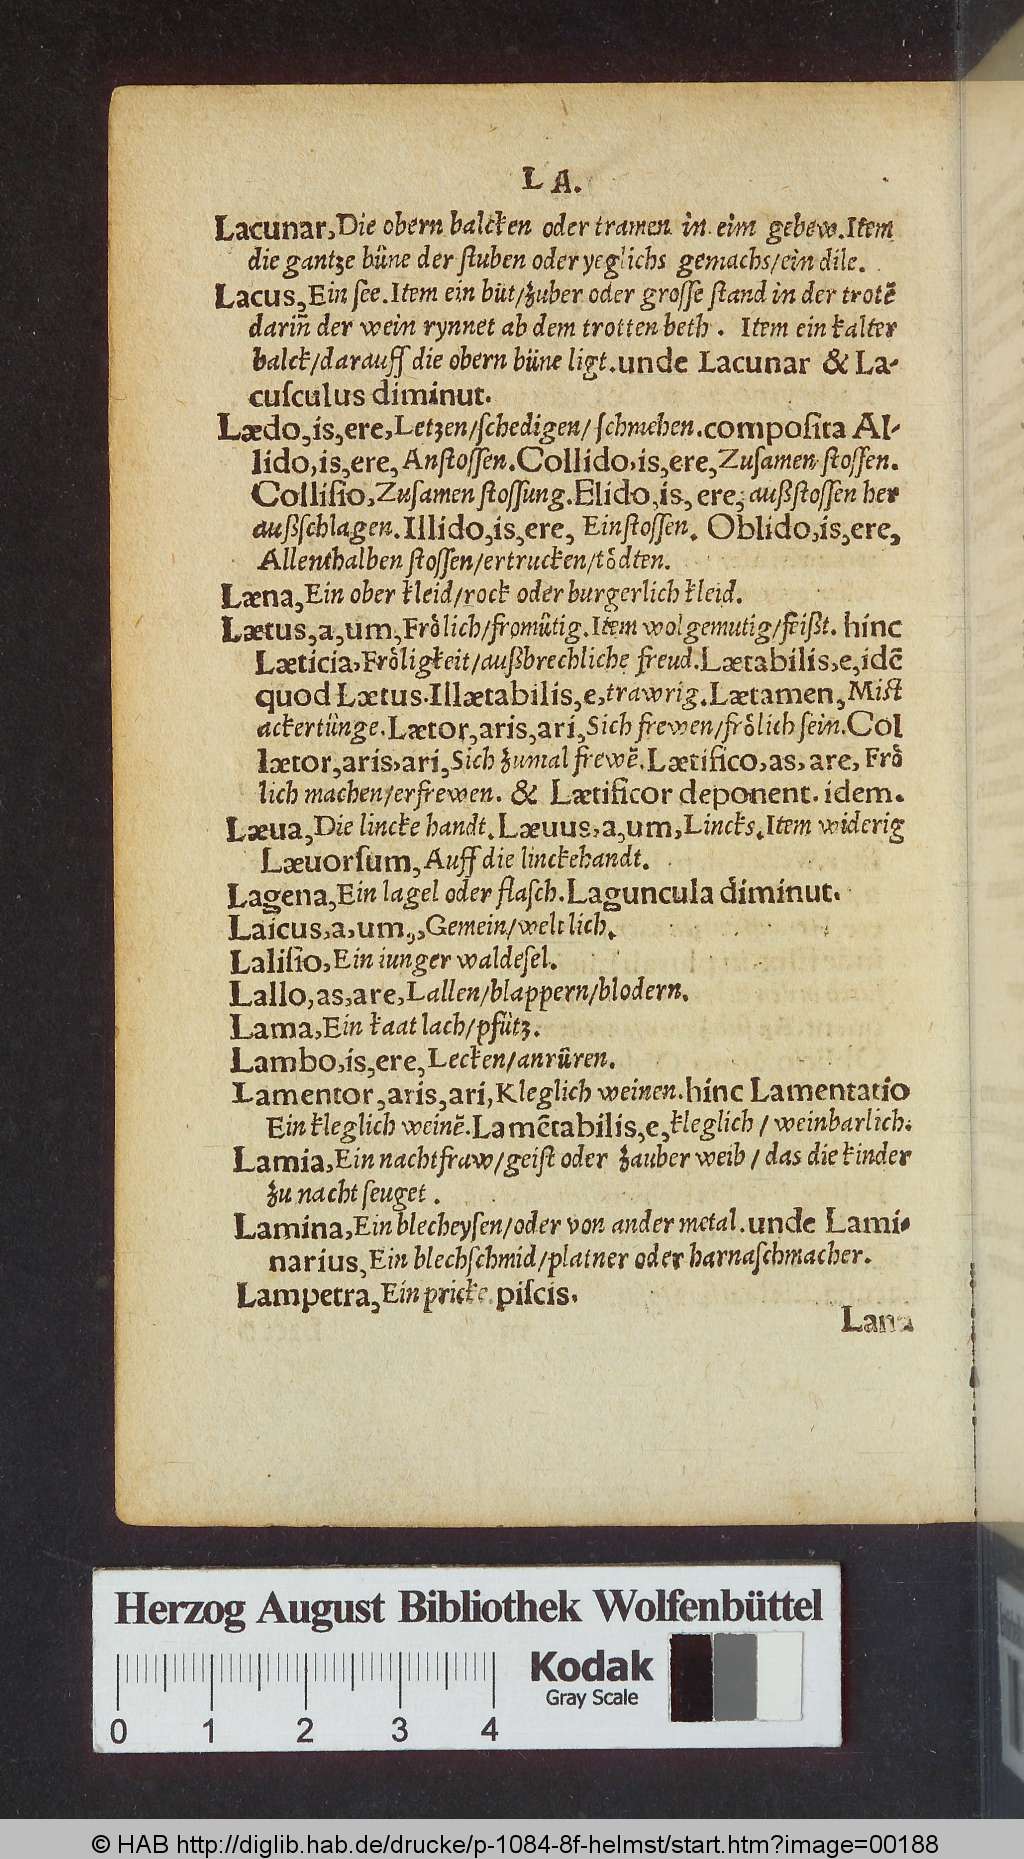 L A.
Lacunar, Die obern balcken oder tramen in eim gebew. Item
die gantze büne der ſtuben oder yeglichs gemachs/ein dile.
Lacus, Ein ſee. Item ein büt/zuber oder groſſe ſtand in der trotē
dariñ der wein rynnet ab dem trotten beth. Item ein kalter
balck/darauff die obern büne ligt. unde Lacunar & La-
cuſculus diminut.
Lædo, is, ere, Letzen/ſchedigen/ſchmehen. compoſita Al-
lido, is, ere, Anſtoſſen. Collido, is, ere, Zuſamen ſtoſſen.
Colliſio, Zuſamen ſtoſſung. Elido, is, ere, außſtoſſen her
außſchlagen. Illido, is, ere, Einſtoſſen. Oblido, is, ere,
Allenthalben ſtoſſen/ertrucken/toͤdten.
Læna, Ein ober kleid/rock oder burgerlich kleid.
Lætus, a, um, Froͤlich/fromuͤtig. Item wolgemutig/feißt. hinc
Læticia, Froͤligkeit/außbrechliche freud. Lætabilis, e, idē
quod Lætus. Illætabilis, e, trawrig. Lætamen, Miſt
ackertünge. Lætor, aris, ari, Sich frewen/froͤlich ſein. Col
lætor, aris, ari, Sich zumal frewē. Lætifico, as, are, Froͤ
lich machen/erfrewen. & Lætificor deponent. idem.
Læua, Die lincke handt. Læuus, a, um, Lincks. Item widerig
Læuorſum, Auff die linckehandt.
Lagena, Ein lagel oder flaſch. Laguncula diminut.
Laicus, a, um,, Gemein/weltlich.
Laliſio, Ein iunger waldeſel.
Lallo, as, are, Lallen/blappern/blodern.
Lama, Ein kaat lach/pfütz.
Lambo, is, ere, Lecken/anruͤren.
Lamentor, aris, ari, Kleglich weinen. hinc Lamentatio
Ein kleglich weinē. Lamētabilis, e, kleglich/weinbarlich.
Lamia, Ein nachtfraw/geiſt oder zauber weib/das die kinder
zu nacht ſeuget.
Lamina, Ein blecheyſen/oder von ander metal. unde Lami-
narius, Ein blechſchmid/platner oder harnaſchmacher.
Lampetra, Ein pricke piſcis.
Lana
Herzog August Bibliothek Wolfenbüttel
Kodak
Gray Scale
0 1 2 3 4
© HAB http://diglib.hab.de/drucke/p-1084-8f-helmst/start.htm?image=00188